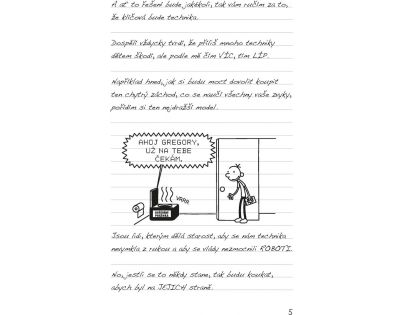 A ať to řešení bude jakékoli, tak vám ručím za to,
že klíčová bude technika.
Dospělí vždycky tvrdí, že příliš mnoho techniky
dětem škodí, ale podle mě čím VÍC, tím LÍP.
Například hned, jak si budu moct dovolit koupit
ten chytrý záchod, co se naučí všechny vaše zvyky,
pořídím si ten nejdražší model.
AHOJ GREGORY,
UŽ NA TEBE
ČEKÁM.
VRRR
Jsou lidi, kterým dělá starost, aby se nám technika
nevymkla z rukou a aby se vlády nezmocnili ROBOTI.
No, jestli se to někdy stane, tak budu koukat,
abych byl na JEJICH straně.
5